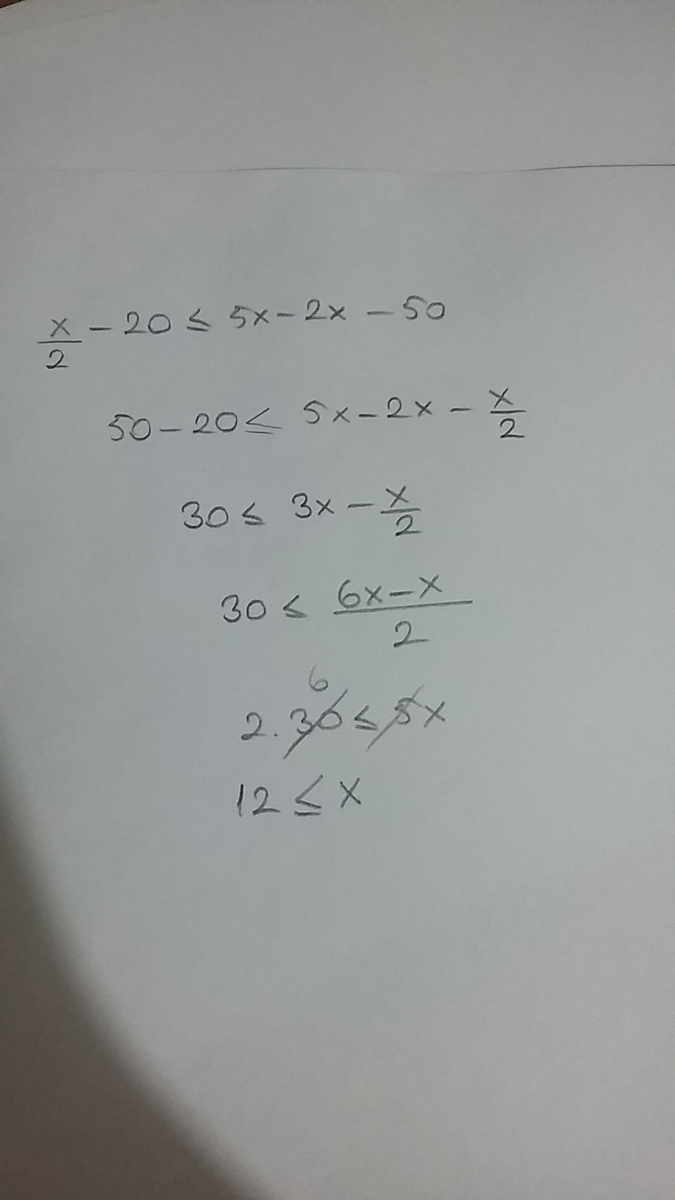 x/2 - 20 ≤ 5x - 2x - 50
50 - 20 ≤ 5x - 2x - x/2
30 ≤ 3x - x/2
30 ≤ (6x - x)/2
6
2.30 ≤ 5x
12 ≤ x